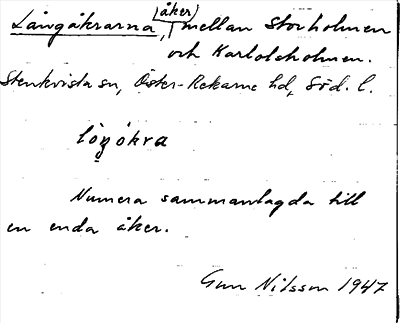 Långåkrarna, (åker) mellan Storholmen
och Karlolsholmen.
Stenkvista sn, Öster-Rekarne hd, Söd. l.
lå̀ŋåkra
Numera sammanlagda till
en enda åker.
Gun Nilsson 1947